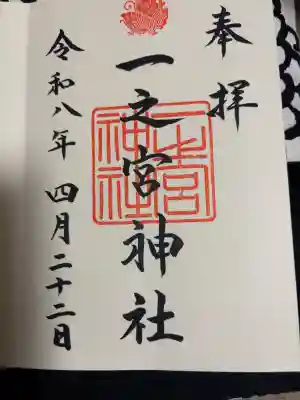 奉拝
一之宮神社
一之宮神社
令和八年 四月二十二日